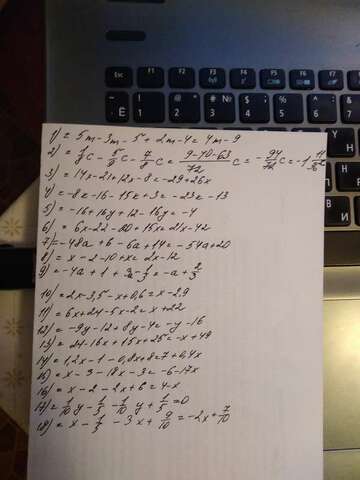 Esc F1 F2 F3 F4 F5 F6 F7
1) = 5m-3m-5+2m-4=4m-9
2) = 1/8 c - 5/9 c - 7/8 c = (9-40-63)/72 c = -94/72 c = -1 11/36
3) = 14x-21+12x-8=-29+26x
4) = -8k-16-15k+3=-23k-13
5) = -16+16y+12-16y=-4
6) = 6x-22-20+15x=21x-42
7) = -48a+6-6a+14=-54a+20
8) = x-2-10+x=2x-12
9) = -4a+1+3a-1/3=-a+2/3
10) = 2x-3,5-x+0,6=x-2,9
11) = 6x+24-5x-2=x+22
12) = -9y-12+8y-4=-y-16
13) = 24-16x+15x+25=-x+49
14) = 1,2x-1-0,8x+8=7+0,4x
15) = x-3-18x-3=-6-17x
16) = x-2-2x+6=4-x
17) = 1/10 y-1/5-1/10 y+1/5=0
18) = x-1/5-3x+9/10=-2x+7/10